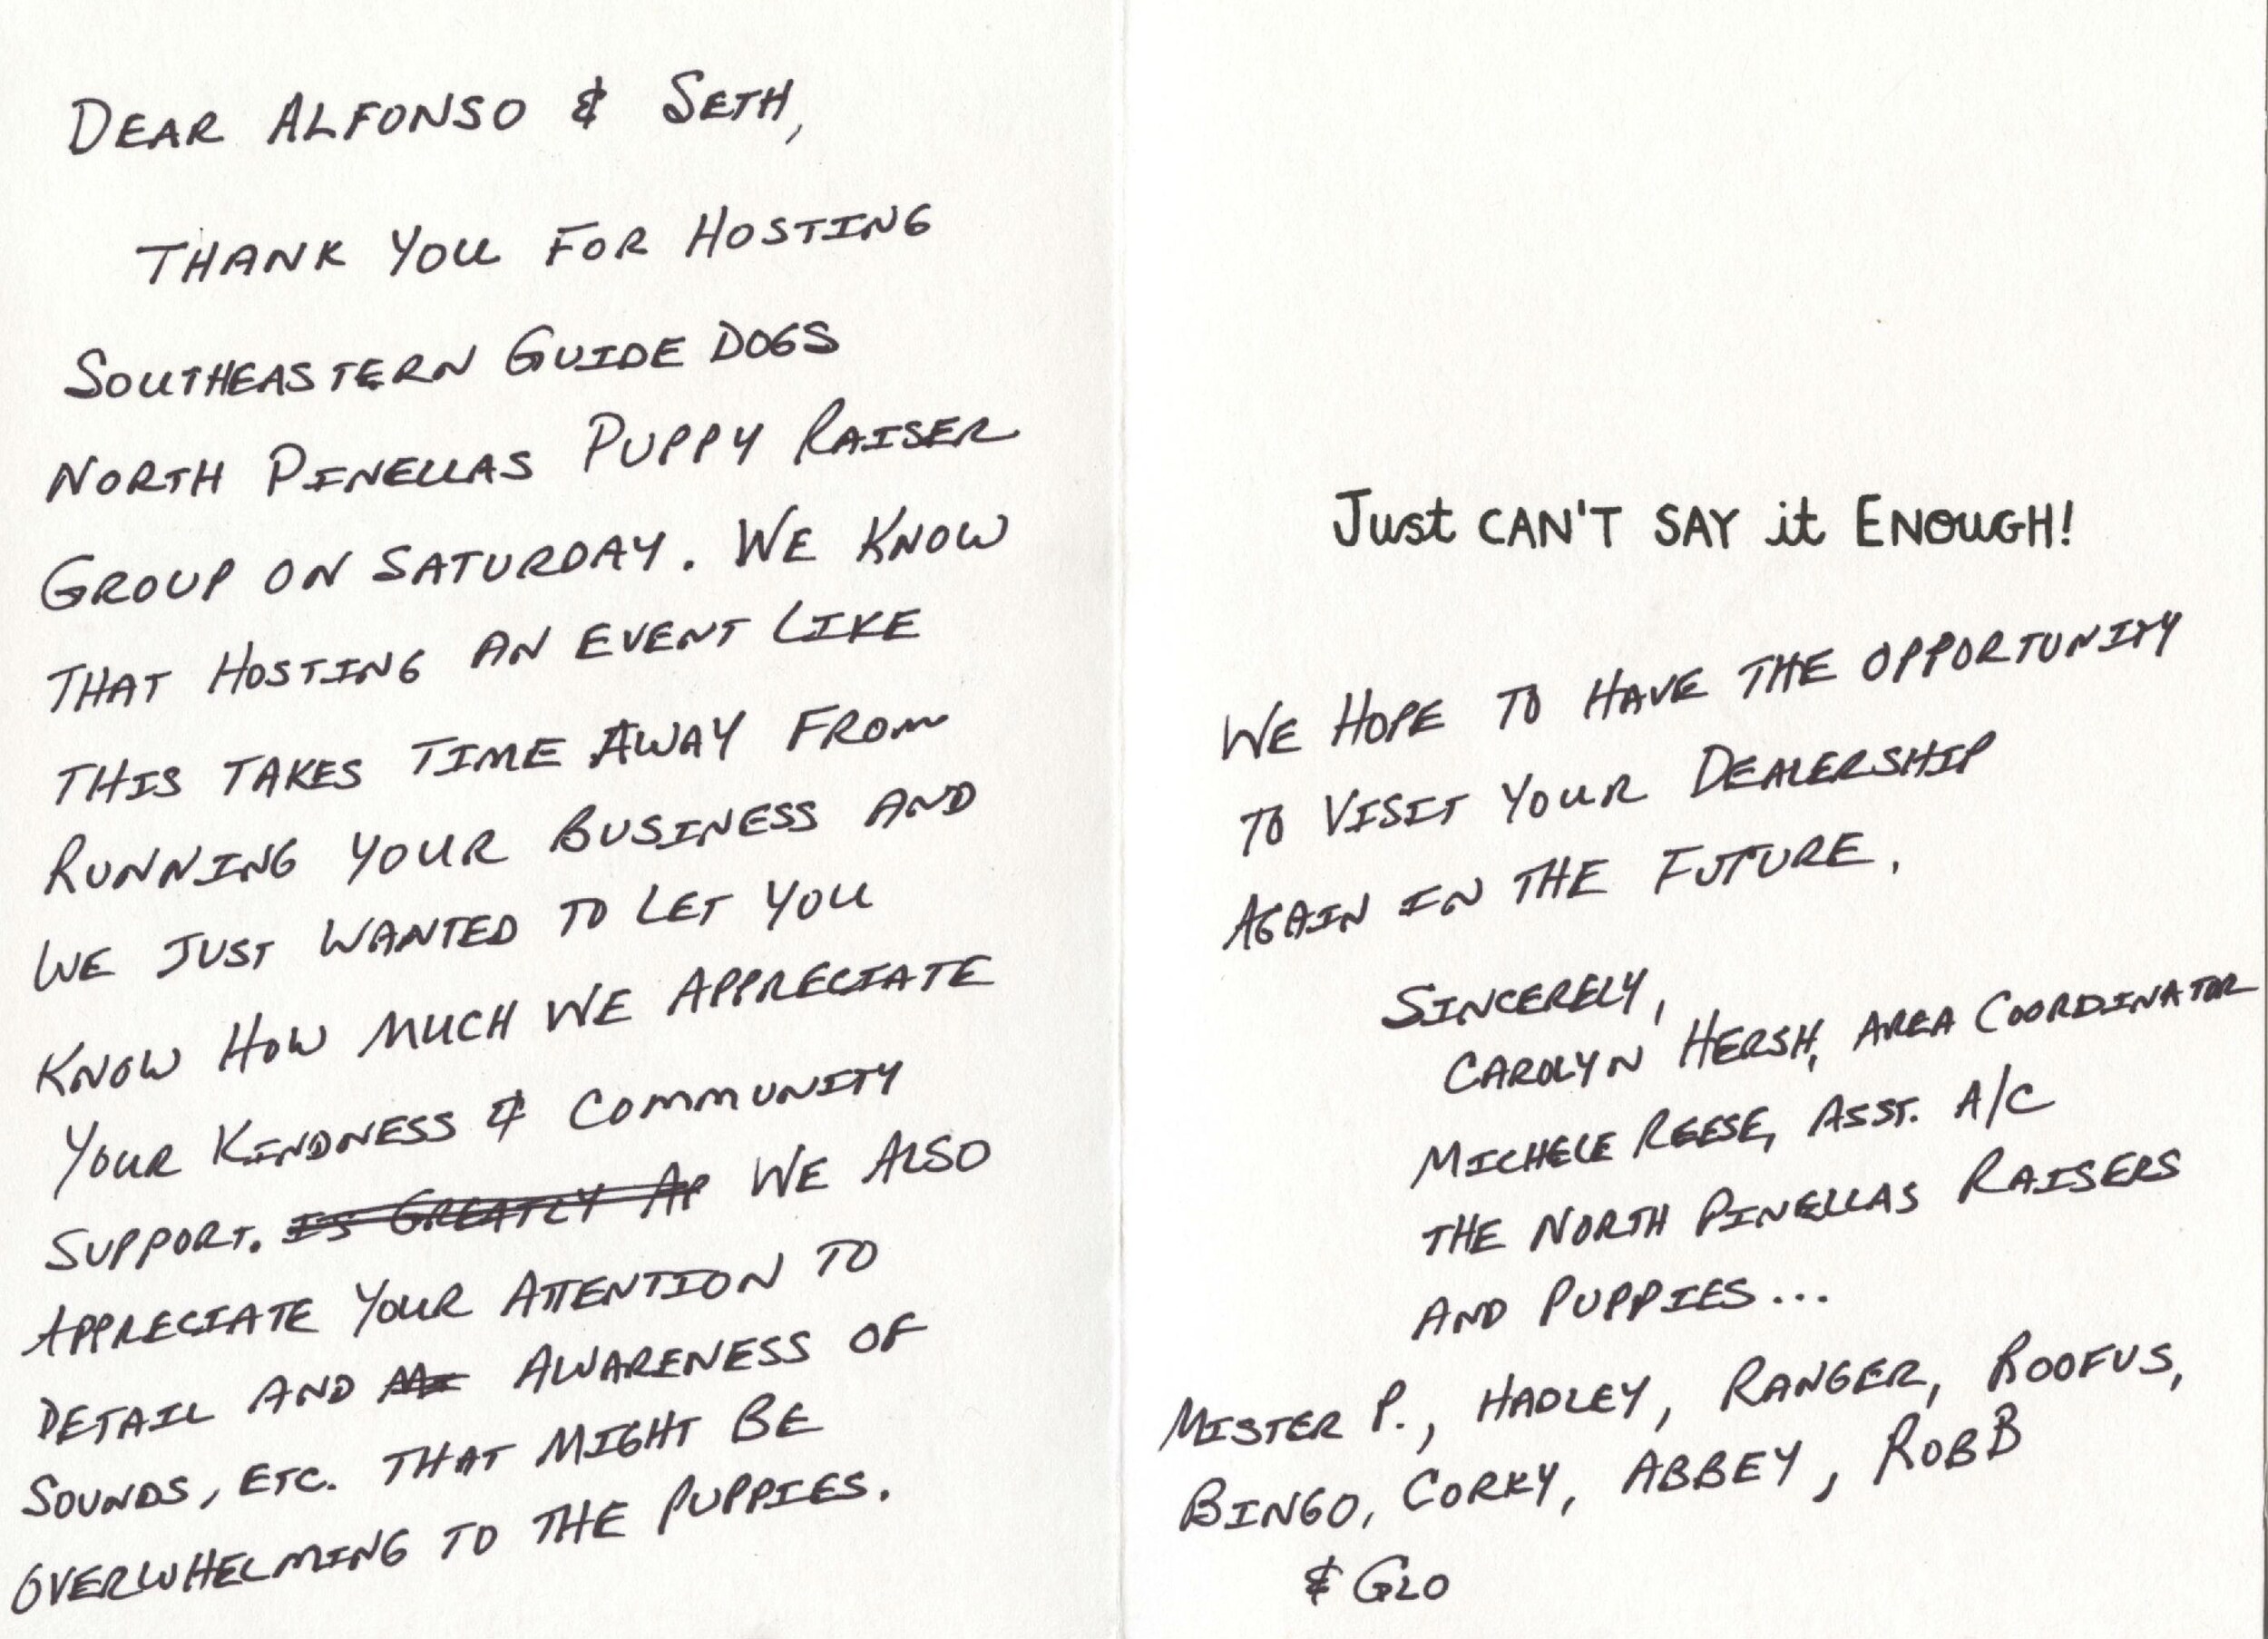 DEAR ALFONSO & SETH,
THANK YOU FOR HOSTING
SOUTHEASTERN GUIDE DOGS
NORTH PINELLAS PUPPY RAISER
GROUP ON SATURDAY. WE KNOW
THAT HOSTING AN EVENT LIKE
THIS TAKES TIME AWAY FROM
RUNNING YOUR BUSINESS AND
WE JUST WANTED TO LET YOU
KNOW HOW MUCH WE APPRECIATE
YOUR KINDNESS & COMMUNITY
SUPPORT. IS GREATLY AP WE ALSO
APPRECIATE YOUR ATTENTION TO
DETAIL AND AWARENESS OF
SOUNDS, ETC. THAT MIGHT BE
OVERWHELMING TO THE PUPPIES.
Just CAN'T SAY it ENOUGH!
WE HOPE TO HAVE THE OPPORTUNITY
TO VISIT YOUR DEALERSHIP
AGAIN IN THE FUTURE.
SINCERELY,
CAROLYN HERSH, AREA COORDINATOR
MICHELE REESE, ASST. A/C
THE NORTH PINELLAS RAISERS
AND PUPPIES...
MISTER P., HADLEY, RANGER, ROOFUS,
BINGO, CORKY, ABBEY, ROBB
& GLO